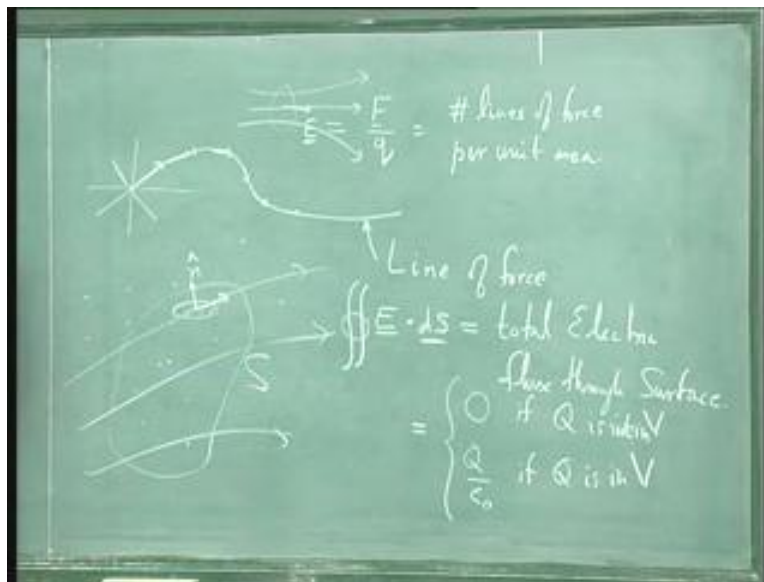 E = F/q = # lines of force
per unit area
Line of force
n̂
S
∯ E · dS = total Electric
flux through Surface
= { 0 if Q is not in V
Q/ε₀ if Q is in V